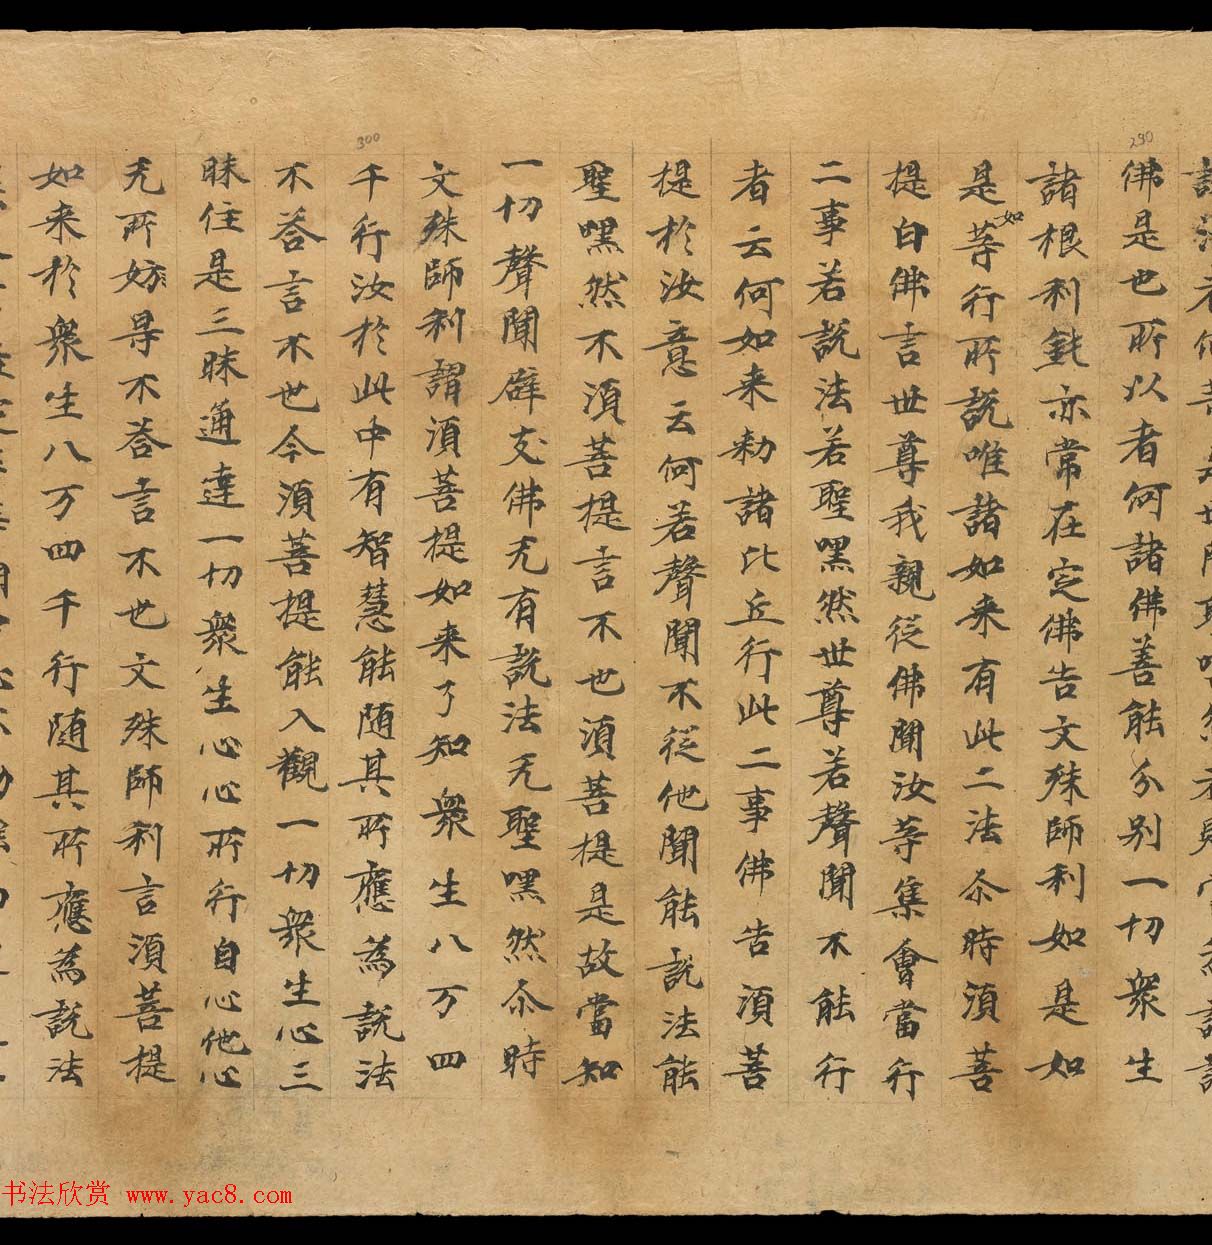 290
佛是也所以者何諸佛善能分别一切衆生
諸根利鈍亦常在定佛告文殊師利如是如
是如等行所説唯諸如来有此二法尒時湏菩
提白佛言世尊我親従佛聞汝等集會當行
二事若説法若聖嘿然世尊若聲聞不能行
者云何如来勑諸比丘行此二事佛告湏菩
提於汝意云何若聲聞不従他聞能説法能
聖嘿然不湏菩提言不也湏菩提是故當知
一切聲聞辟支佛无有説法无聖嘿然尒時
文殊師利謂湏菩提如来了知衆生八万四
300
千行汝於此中有智慧能随其所應為説法
不荅言不也今湏菩提能入觀一切衆生心三
昧住是三昧通達一切衆生心心所行自心他心
无所妨㝵不荅言不也文殊師利言湏菩提
如来於衆生八万四千行随其所應為説法
书法欣赏 www.yac8.com